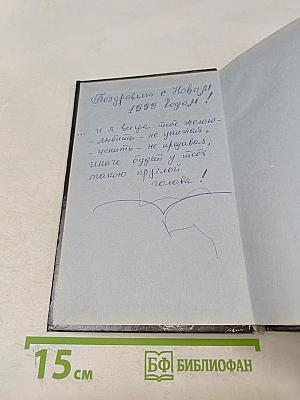 Поздравляю с Новым
1999 Годом!
... и я всегда тебе желаю-
- любить - не унижая,
- ценить - не продавая,
иначе будет у тебя
такою круглой
голова!
15 см
БФ БИБЛИОФАН